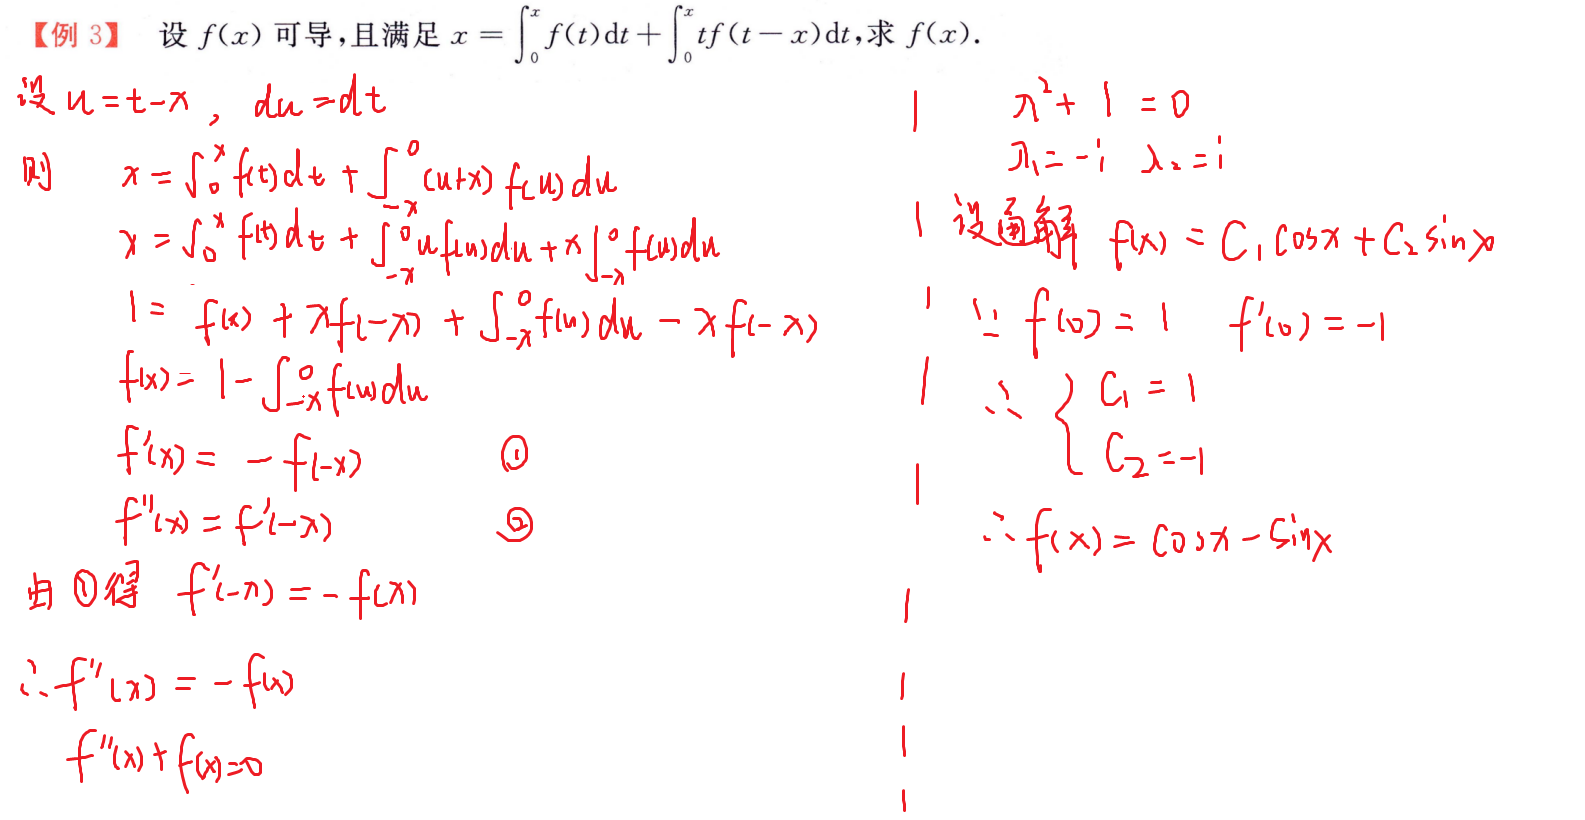 【例 3】 设 f(x) 可导,且满足 x = ∫₀ˣ f(t)dt + ∫₀ˣ tf(t − x)dt,求 f(x).
设 u=t-x, du=dt
则 x = ∫₀ˣ f(t)dt + ∫₋ₓ⁰ (u+x) f(u)du
x = ∫₀ˣ f(t)dt + ∫₋ₓ⁰ uf(u)du + x∫₋ₓ⁰ f(u)du
1 = f(x) + xf(-x) + ∫₋ₓ⁰ f(u)du - xf(-x)
f(x) = 1 - ∫₋ₓ⁰ f(u)du
f'(x) = -f(-x) ①
f''(x) = f'(-x) ②
由①得 f'(-x) = -f(x)
∴ f''(x) = -f(x)
f''(x) + f(x) = 0
λ² + 1 = 0
λ₁ = -i λ₂ = i
设通解 f(x) = C₁cosx + C₂sinx
∵ f(0) = 1 f'(0) = -1
∴ { C₁ = 1
C₂ = -1
∴ f(x) = cosx - sinx